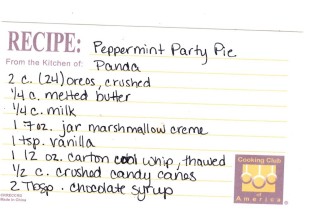 RECIPE: Peppermint Party Pie
From the Kitchen of: Panda
2 c. (24) oreos, crushed
1/4 c. melted butter
1/4 c. milk
1 7oz. jar marshmallow creme
1 tsp. vanilla
1 12 oz. carton cool whip, thawed
1/2 c. crushed candy canes
2 Tbsp. chocolate syrup
Cooking Club
of
America
Made in China